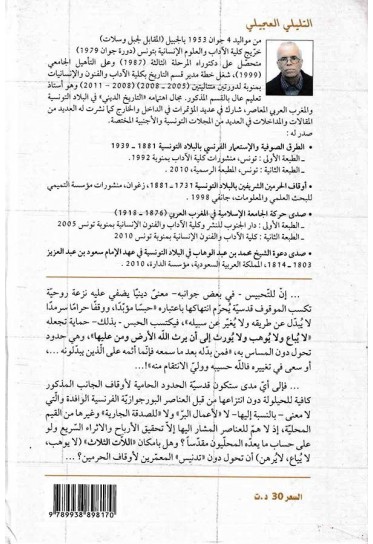 التليلي العجيلي
من مواليد 4 جوان 1953 بالجبيل (المقابل لجبل وسلات)
خريج كلية الآداب والعلوم الإنسانية بتونس (دورة جوان 1979)
متحصل على دكتوراه المرحلة الثالثة (1987) وعلى التأهيل الجامعي
(1999)، شغل خطة مدير قسم التاريخ بكلية الآداب والفنون والإنسانيات
بمنوبة لدورتين متتاليتين (2005 - 2008) (2008 - 2011) وهو أستاذ
تعليم عال بالقسم المذكور. مجال اهتمامه «التاريخ الديني» في البلاد التونسية
والمغرب العربي المعاصر، شارك في عديد المؤتمرات في الداخل والخارج كما نشرت له العديد من
المقالات والمداخلات في العديد من المجلات التونسية والأجنبية المختصة.
صدر له :
• الطرق الصوفية والإستعمار الفرنسي بالبلاد التونسية 1881 - 1939
ـ الطبعة الأولى : تونس، منشورات كلية الآداب بمنوبة 1992.
ـ الطبعة الثانية : تونس، المطبعة الرسمية، 2010.
• أوقاف الحرمين الشريفين بالبلاد التونسية 1731 - 1881، زغوان، منشورات مؤسسة التميمي
للبحث العلمي والمعلومات، جانفي 1998.
• صدى حركة الجامعة الإسلامية في المغرب العربي (1876 - 1918)
ـ الطبعة الأولى : دار الجنوب للنشر وكلية الآداب والفنون والإنسانية بمنوبة تونس 2005
ـ الطبعة الثانية : كلية الآداب والفنون الإنسانية بمنوبة تونس 2010
• صدى دعوة الشيخ محمد بن عبد الوهاب في البلاد التونسية في عهد الإمام سعود بن عبد العزيز
1803 - 1814، المملكة العربية السعودية، مؤسسة الدارة، 2010.
... إنّ للتحبيس - في بعض جوانبه- معنىً دينيّا يضفي عليه نزعة روحيّة
تكسب الموقوف قدسيّة يُحرّم انتهاكها باعتباره «حبسا مؤبّدا، ووقفًا حرامًا سرمدًا
لا يُبدّل عن طريقه ولا يُغيّر عن سبيله»، فيكتسب الحبس - بذلك- حماية تجعله
«لا يُباع ولا يُوهب ولا يُورث إلى أن يرث اللّه الأرض ومن عليها»، وهي حدود
تحول دون المساس به، «فمن بدّله بعد ما سمعه فإنّما أثمه على الّذين يبدّلونه ...،
أو سعى في تغييره فاللّه حسيبه ووليّ الإنتقام منه»!...
... فإلى أيّ مدى ستكون قدسيّة الحدود الحامية لأوقاف الجانب المذكور
كافية للحيلولة دون انتزاعها من قبل العناصر البورجوازيّة الفرنسية الوافدة والّتي
لا معنى - بالنسبة إليها- لـ «لأعمال البرّ» ولا «للصدقة الجارية» وغيرها من القيم
المحليّة، إذ لا همّ للعناصر المشار اليها إلاّ تحقيق الأرباح والاثراء السريع ولو
على حساب ما يعدّه المحلّيون مقدّساً ؟ وهل بامكان «اللاّت الثلاث» (لا يوهب،
لا يُباع، لايُرهن) أن تحول دون «تدنيس» المعمّرين لأوقاف الحرمين ؟...
السعر 30 د.ت
9 789938 898170